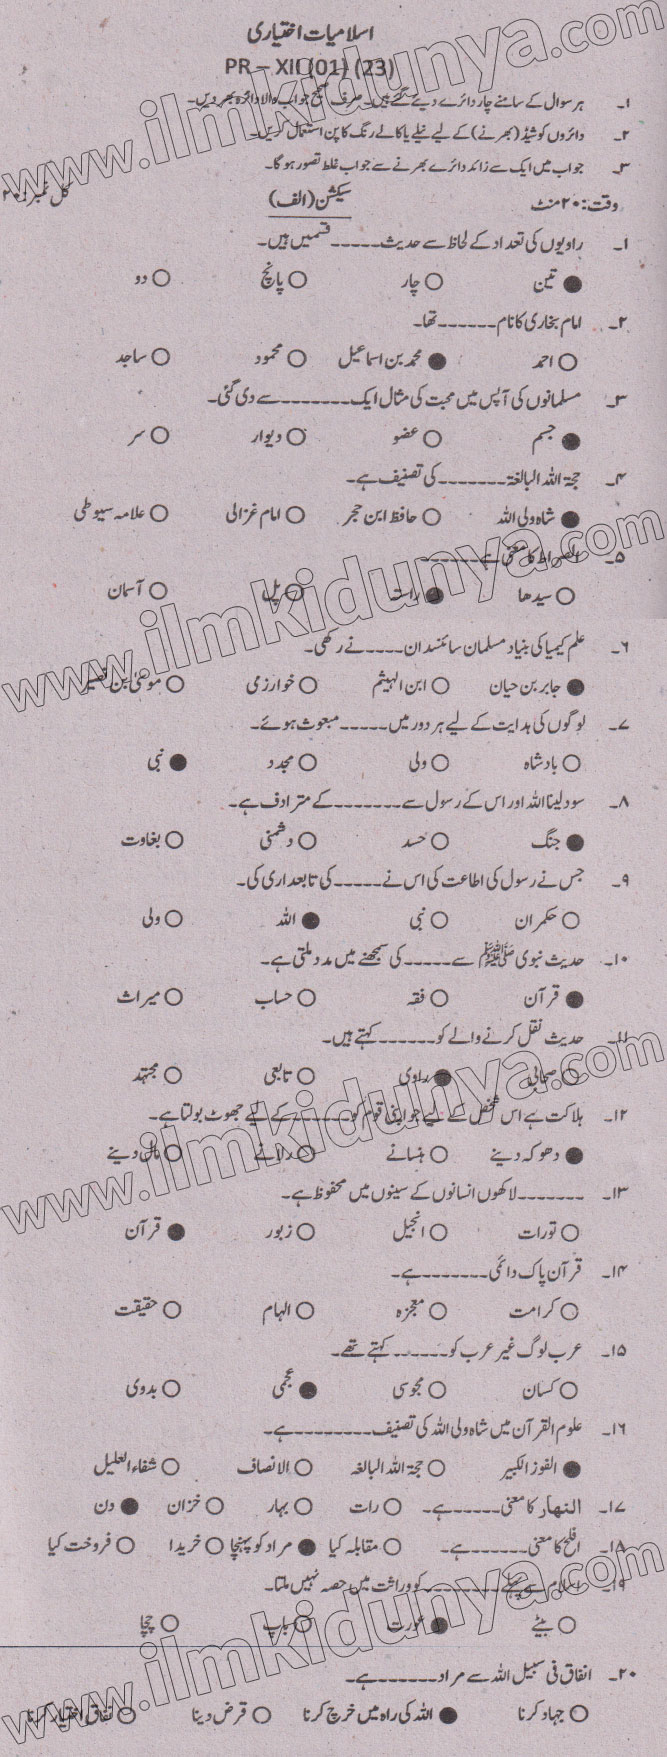 اسلامیات اختیاری
PR – XII (01) (23)
۱۔ ہر سوال کے سامنے چار دائرے دیے گئے ہیں۔ صرف صحیح جواب والا دائرہ بھر دیں۔
۲۔ دائروں کو شیڈ (بھرنے) کے لیے نیلے یا کالے رنگ کا پن استعمال کریں۔
۳۔ جواب میں ایک سے زائد دائرے بھرنے سے جواب غلط تصور ہوگا۔
وقت: ۲۰ منٹ سیکشن (الف) کل نمبر: ۲۰
۱۔ راویوں کی تعداد کے لحاظ سے حدیث ----- قسمیں ہیں۔
● تین ○ چار ○ پانچ ○ دو
۲۔ امام بخاری کا نام ------ تھا۔
○ احمد ● محمد بن اسماعیل ○ محمود ○ ساجد
۳۔ مسلمانوں کی آپس میں محبت کی مثال ایک ------- سے دی گئی۔
● جسم ○ عضو ○ دیوار ○ سر
۴۔ حجۃ اللہ البالغۃ ------- کی تصنیف ہے۔
● شاہ ولی اللہ ○ حافظ ابن حجر ○ امام غزالی ○ علامہ سیوطی
۵۔ الصراط کا معنی ہے ------
○ سیدھا ● راستہ ○ پل ○ آسمان
۶۔ علم کیمیا کی بنیاد مسلمان سائنسدان ---- نے رکھی۔
● جابر بن حیان ○ ابن الہیثم ○ خوارزمی ○ موسیٰ بن نصیر
۷۔ لوگوں کی ہدایت کے لیے ہر دور میں ----- مبعوث ہوئے۔
○ بادشاہ ○ ولی ○ مجدد ● نبی
۸۔ سود لینا اللہ اور اس کے رسول سے ------- کے مترادف ہے۔
● جنگ ○ حسد ○ دشمنی ○ بغاوت
۹۔ جس نے رسول کی اطاعت کی اس نے ----- کی تابعداری کی۔
○ حکمران ○ نبی ● اللہ ○ ولی
۱۰۔ حدیث نبوی ﷺ سے ----- کی سمجھنے میں مدد ملتی ہے۔
● قرآن ○ فقہ ○ حساب ○ میراث
۱۱۔ حدیث نقل کرنے والے کو ------ کہتے ہیں۔
○ صحابی ● راوی ○ تابعی ○ مجتہد
۱۲۔ ہلاکت ہے اس شخص کے لیے جو اپنی قوم کو ------- کے لیے جھوٹ بولتا ہے۔
● دھوکہ دینے ○ ہنسانے ○ رلانے ○ مال دینے
۱۳۔ ------- لاکھوں انسانوں کے سینوں میں محفوظ ہے۔
○ تورات ○ انجیل ○ زبور ● قرآن
۱۴۔ قرآن پاک دائمی ------- ہے۔
○ کرامت ○ معجزہ ○ الہام ○ حقیقت
۱۵۔ عرب لوگ غیر عرب کو ------ کہتے تھے۔
○ کسان ○ مجوسی ● عجمی ○ بدوی
۱۶۔ علوم القرآن میں شاہ ولی اللہ کی تصنیف -------- ہے۔
● الفوز الکبیر ○ حجۃ اللہ البالغہ ○ الانصاف ○ شفاء العلیل
۱۷۔ النھار کا معنی ----- ہے۔ ○ رات ○ بہار ○ خزاں ● دن
۱۸۔ افلح کا معنی ------ ہے۔ ○ مقابلہ کیا ● مراد کو پہنچا ○ خریدا ○ فروخت کیا
۱۹۔ اسلام سے پہلے -------- کو وراثت میں حصہ نہیں ملتا۔
○ بیٹے ● عورت ○ باپ ○ چچا
۲۰۔ انفاق فی سبیل اللہ سے مراد ------ ہے۔
○ جہاد کرنا ● اللہ کی راہ میں خرچ کرنا ○ قرض دینا ○ نفاق اختیار کرنا
www.ilmkidunya.com
www.ilmkidunya.com
www.ilmkidunya.com
www.ilmkidunya.com